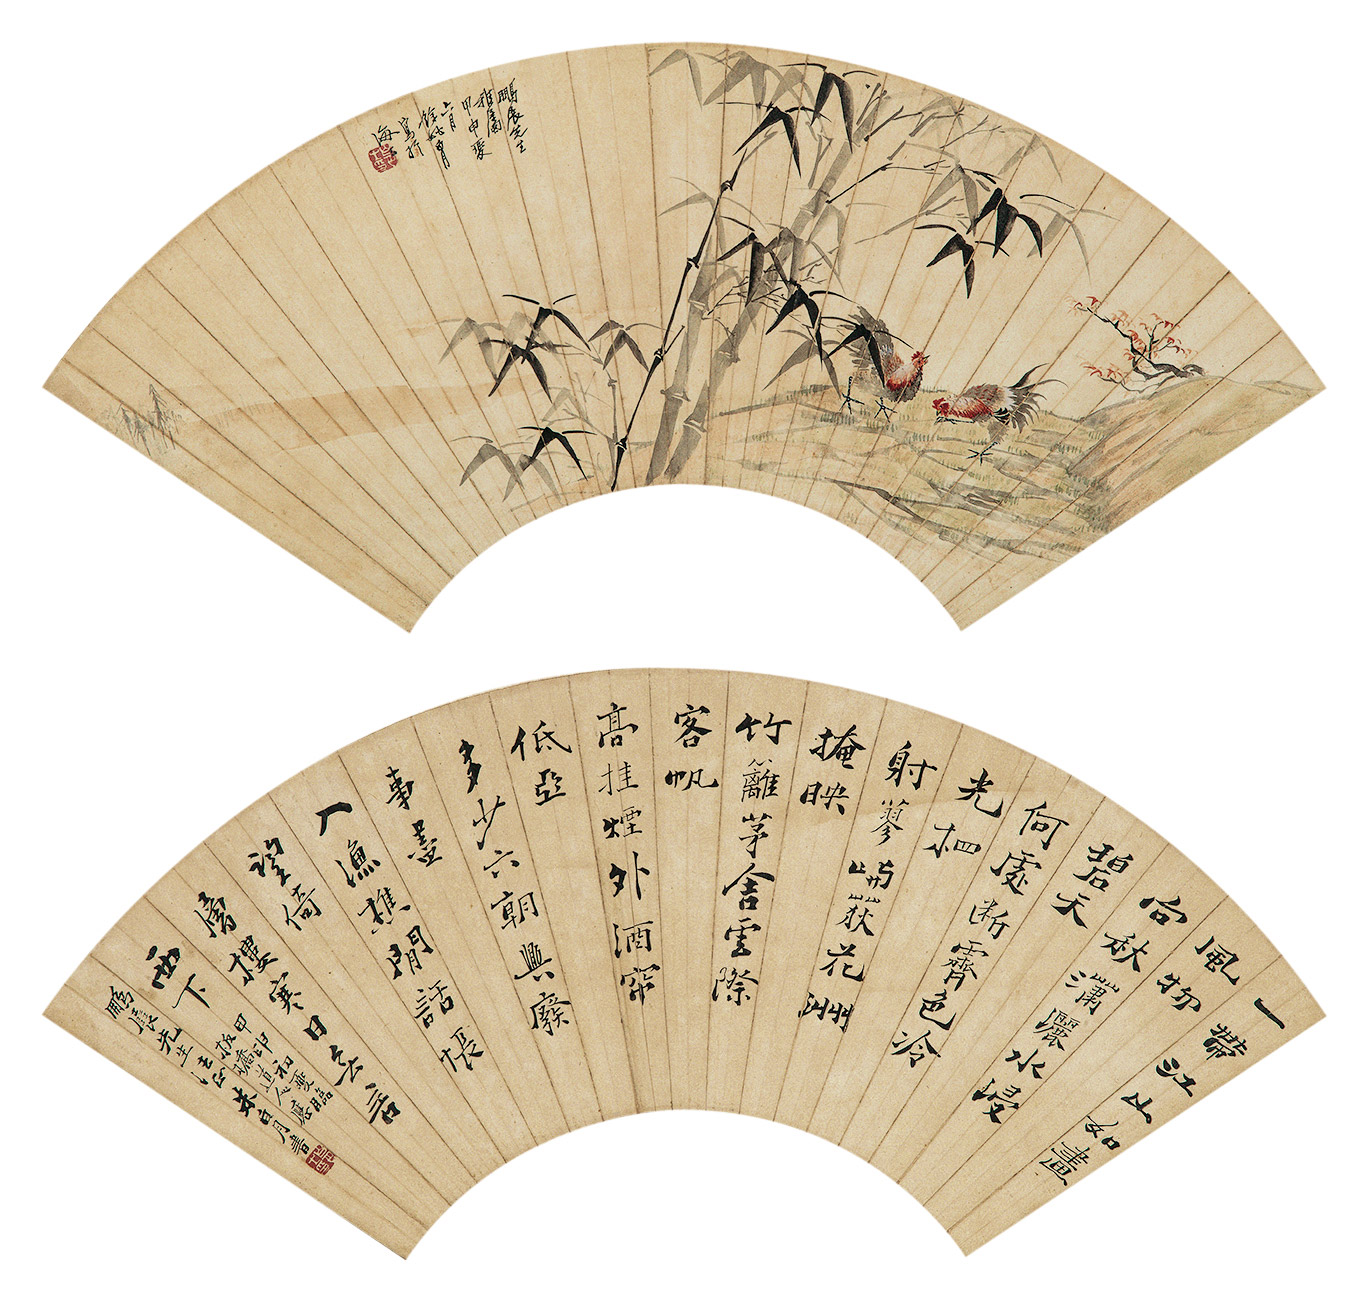 鵬展先生
雅屬
甲申夏
六月
寫於
海上
一帶江山如畫
風物
向秋瀟灑水浸
碧天
何處断霽色冷
光相
射蓼嶼荻花洲
掩映
竹籬茅舍雲際
客帆
高挂煙外酒帘
低亞
多少六朝興廢
事盡
入漁樵閒話悵
望倚
層樓寒日無言
西下
甲申初夏臨
板橋道人應
鵬展先生法正
朱白月書